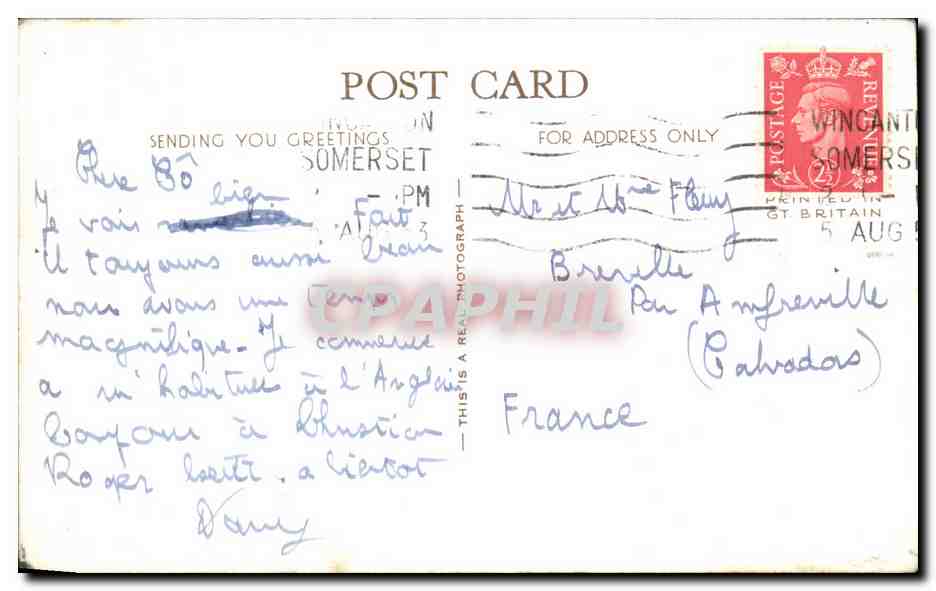 POST CARD
SENDING YOU GREETINGS
FOR ADDRESS ONLY
SOMERSET
- PM
AUG 3
POSTAGE REVENUE
2½
WINCANT
SOMERSE
5 AUG 5
PRINTED IN
GT. BRITAIN
THIS IS A REAL PHOTOGRAPH
CPAPHIL
bien
Je vais Fait
il toujours aussi beau
nous avons une temps
magnifique. Je commence
a m'habituer à l'Anglais
Bonjour à Christian
Roger a bientot
Dany
Mr et Mme Fleury
Breville
Par Amfreville
(Calvados)
France